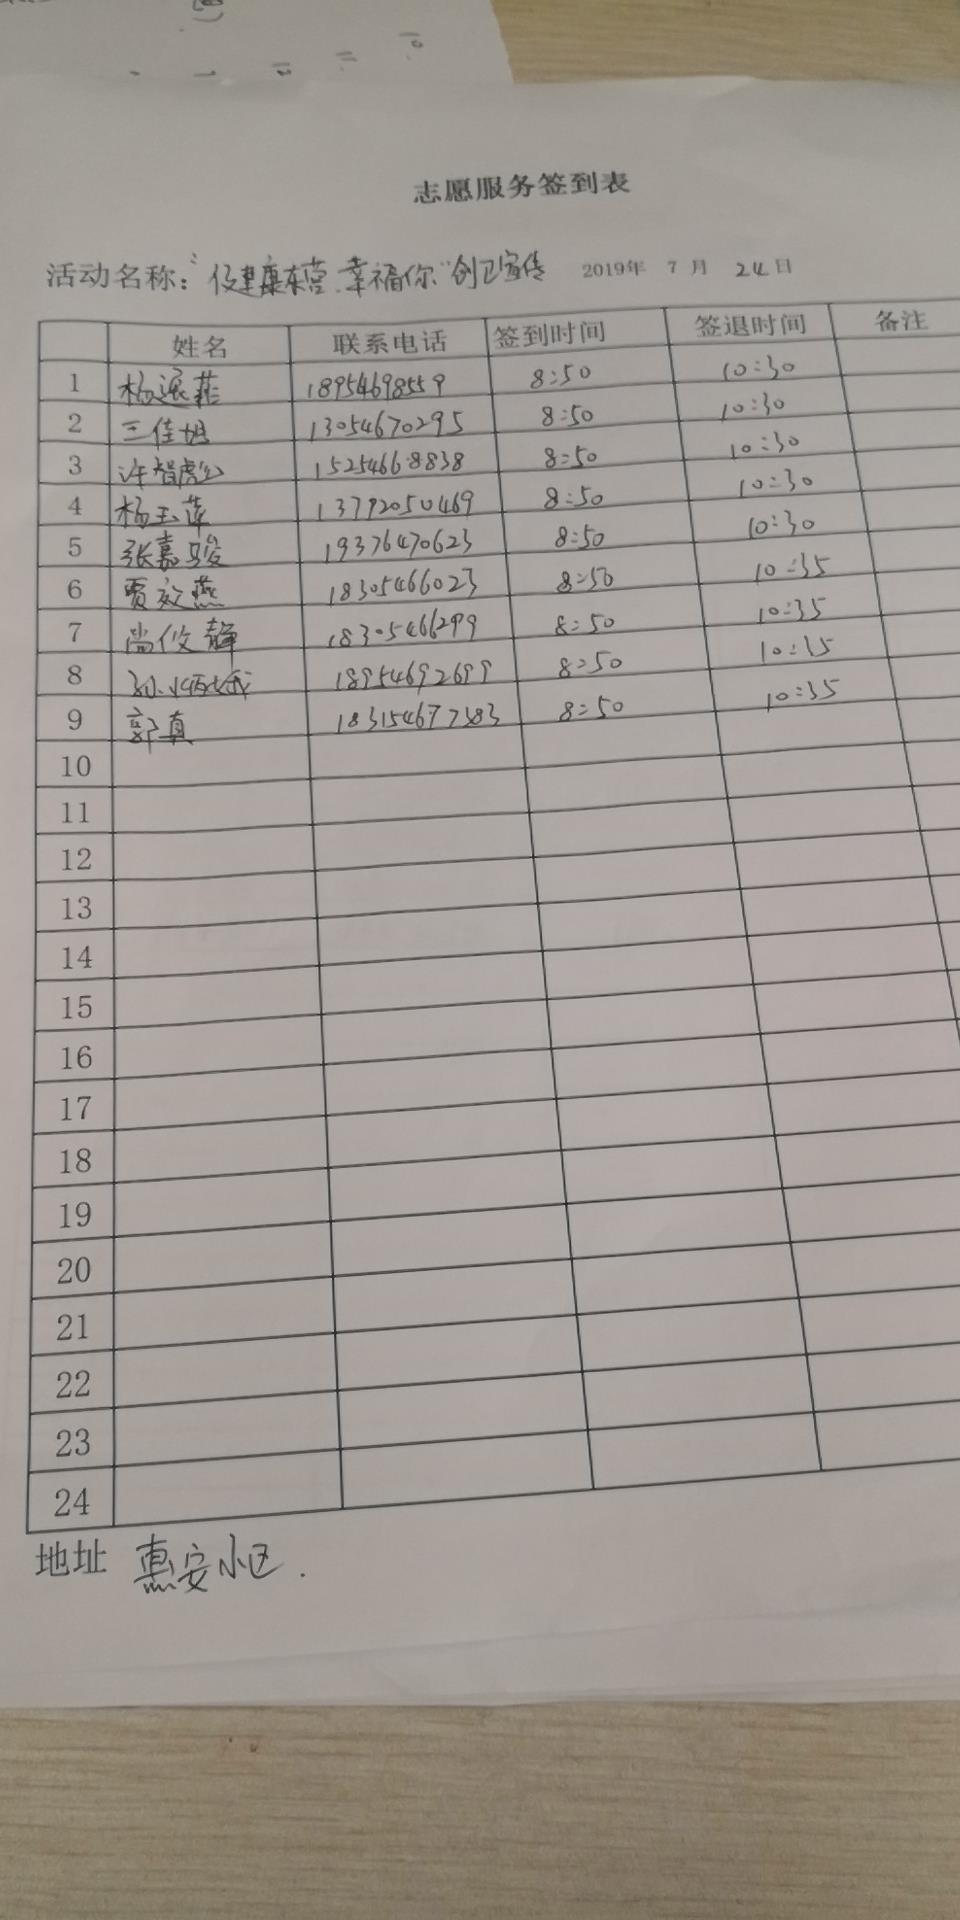 志愿服务签到表
活动名称："健康东营.幸福你"创卫宣传 2019年 7 月 24 日
姓名 联系电话 签到时间 签退时间 备注
1 杨 18954698559 8:50 10:30
2 13054670295 8:50 10:30
3 许智 15254668838 8:50 10:30
4 杨玉莲 13792050469 8:50 10:30
5 张嘉骏 19376470623 8:50 10:30
6 贾效燕 18305466023 8:50 10:35
7 尚俊静 18305466299 8:50 10:35
8 18954692699 8:50 10:35
9 郭真 8:50 10:35
10
11
12
13
14
15
16
17
18
19
20
21
22
23
24
地址 惠安小区.